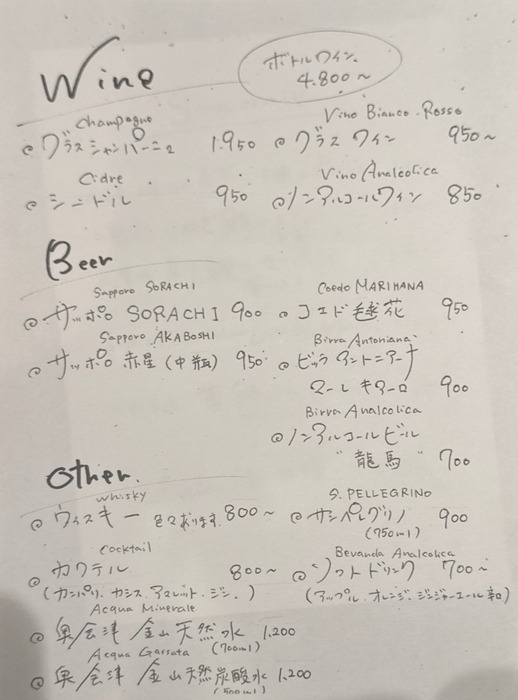 Wine
ボトルワイン
4.800~
Champagne
◎グラスシャンパーニュ 1.950
Vino Bianco・Rosso
◎グラスワイン 950~
Cidre
◎シードル 950
Vino Analcolica
◎ノンアルコールワイン 850
Beer
Sapporo SORACHI
◎サッポロ SORACHI 900
Coedo MARIHANA
◎コエド毬花 950
Sapporo AKABOSHI
◎サッポロ 赤星(中瓶) 950
Birra Antoniana
◎ビッラ アントニアーナ
マーレ キアーロ 900
Birra Analcolica
◎ノンアルコールビール
"龍馬" 700
Other.
Whisky
◎ウィスキー 色々ございます 800~
S. PELLEGRINO
◎サンペレグリノ 900
(750ml)
Cocktail
◎カクテル 800~
(カンパリ.カシス.アマレット.ジン.)
Bevanda Analcolica
◎ソフトドリンク 700~
(アップル.オレンジ.ジンジャーエール辛口)
Acqua Minerale
◎奥会津 金山天然水 1.200
(700ml)
Acqua Gassata
◎奥会津 金山天然炭酸水 1.200
(500ml)